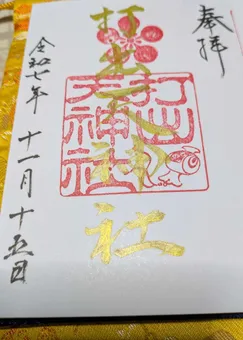 奉拝
打出天神社
打出
天神社
令和七年 十一月十五日